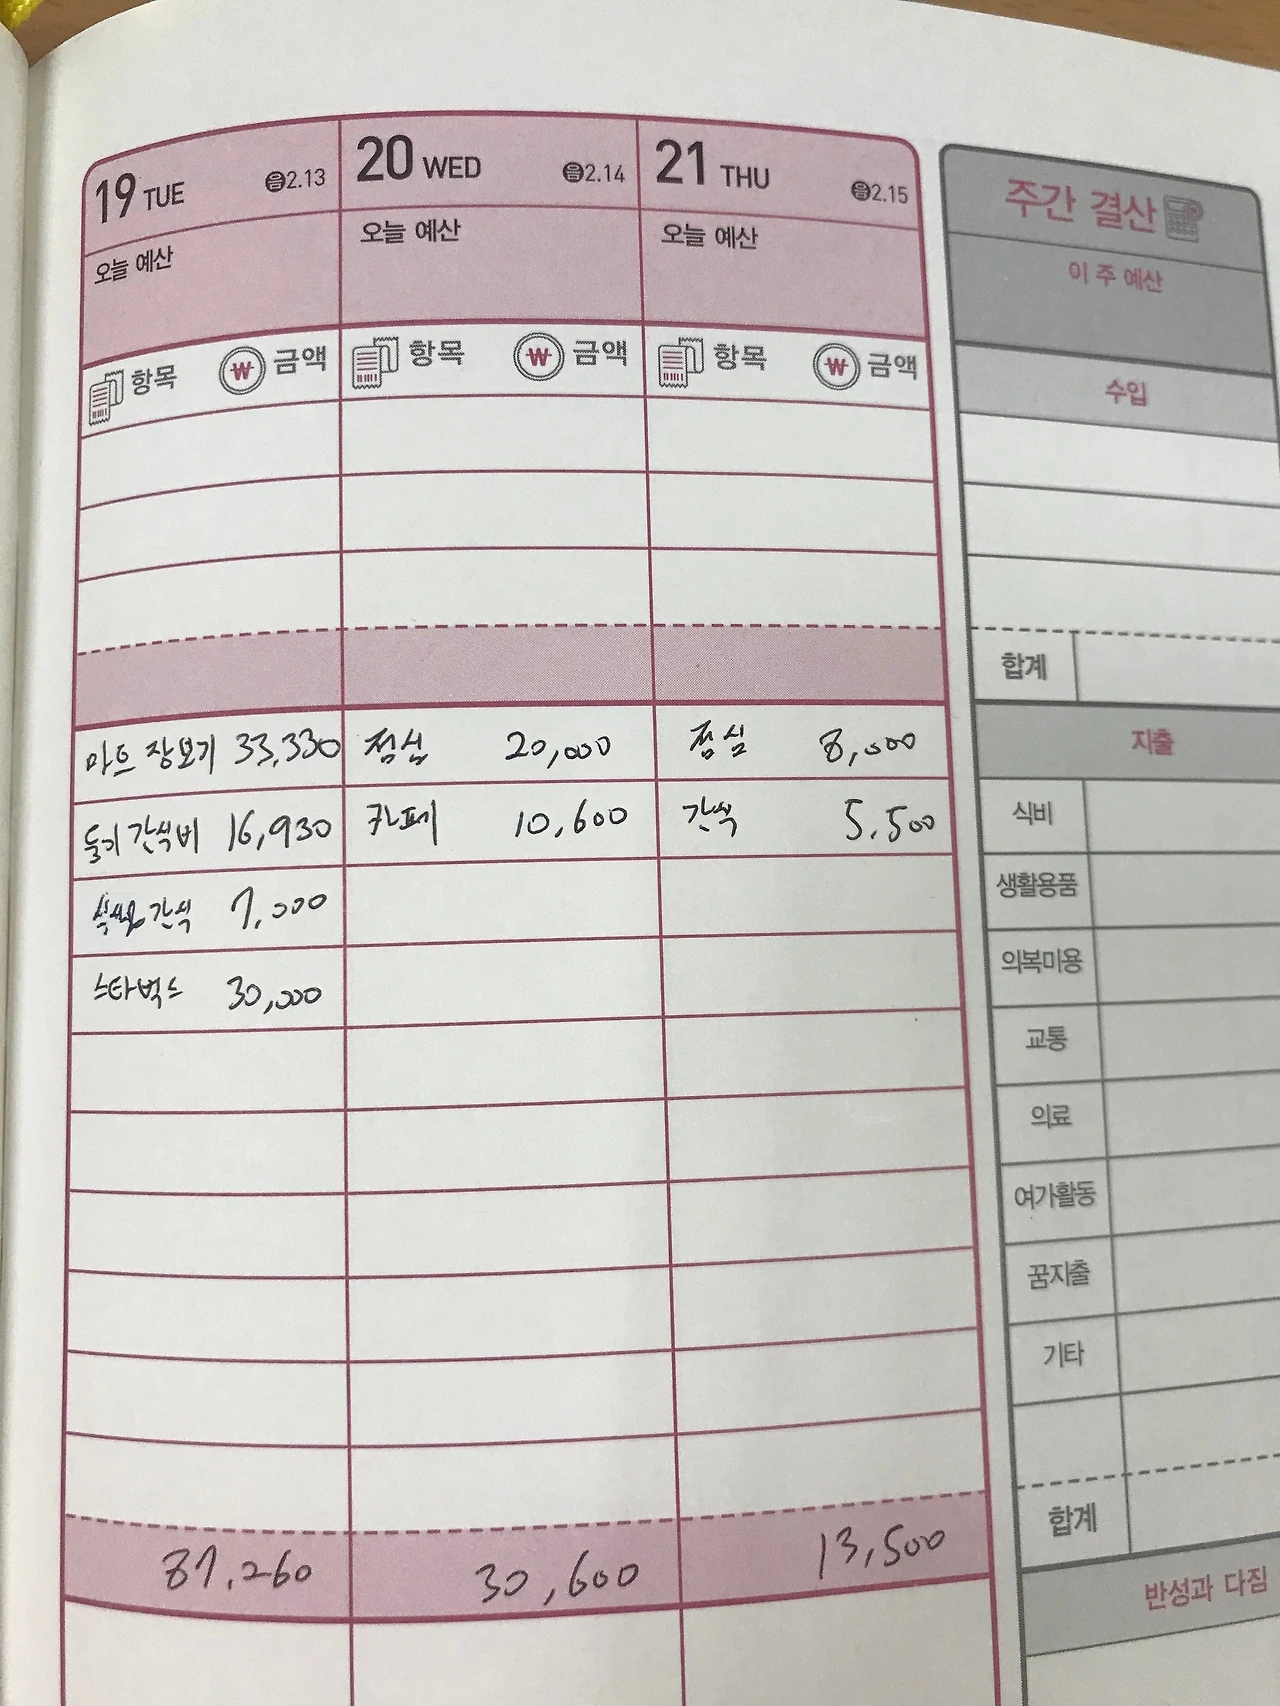 19 TUE 음2.13
20 WED 음2.14
21 THU 음2.15
주간 결산
오늘 예산
오늘 예산
오늘 예산
이 주 예산
항목 ₩ 금액
항목 ₩ 금액
항목 ₩ 금액
수입
합계
지출
마트 장보기 33,330
점심 20,000
점심 8,000
식비
둥이 간식비 16,930
카페 10,600
간식 5,500
생활용품
간식 7,000
의복미용
스타벅스 30,000
교통
의료
여가활동
꿈지출
기타
합계
87,260
30,600
13,500
반성과 다짐